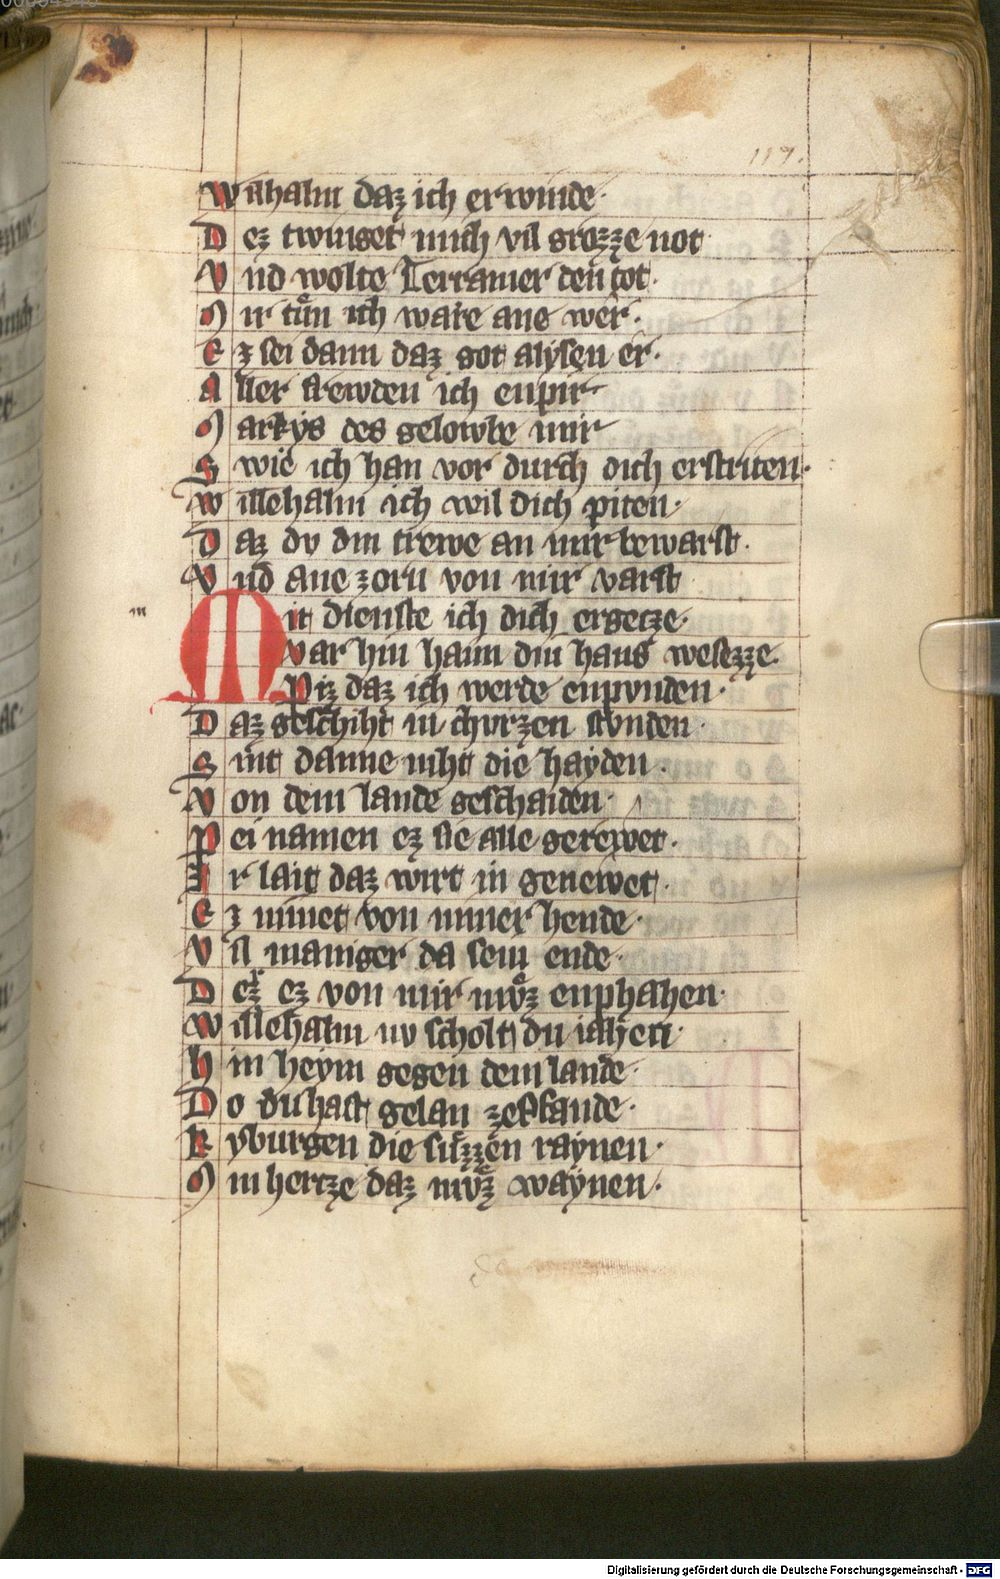 117.
Wilhalm daz ich erwinde·
Dez twinget mich vil grozze not·
Vnd wolte Terramer den tot·
Mir tůn ich ware ane wer·
Ez sei dann daz got alysen er·
Aller frewden ich enpir
Markys des gelowbe mir
Swie ich han vor durch dich erstriten·
Willehalm ich wil dich piten·
Daz dv din trewe an mir bewarst·
Vnd ane zorn von mir varst
m
Mit dienste ich dich ergetze·
var hin haim din haus wesezze·
Piz daz ich werde enpvnden·
Daz geschiht in chvrzen stvnden·
Sint danne niht die hayden·
Von dem lande geschaiden·
Pei namen ez sie alle gerewet·
Ir lait daz wirt in genewet·
Ez nimet von miner hende·
Vil maniger da sein ende·
Der ez von mir mvͦz enphahen·
Willehalm nv scholt du iahen·
Hin heym gegen dem lande·
Do du hast gelan ze pfande·
Kyburgen die sůzzen raynen·
Min hertze daz mvͦz waynen·
Digitalisierung gefördert durch die Deutsche Forschungsgemeinschaft - DFG